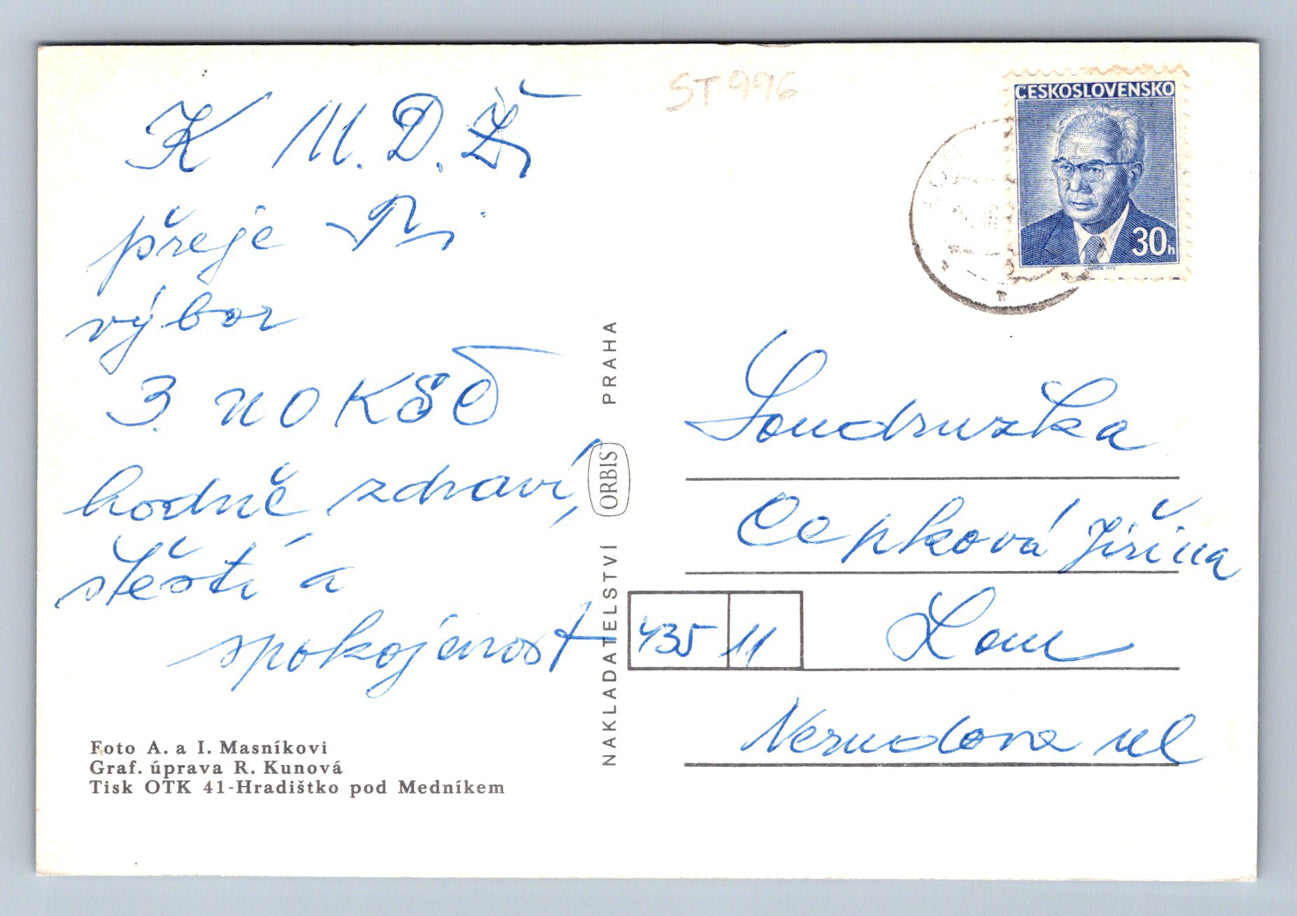 ST 996
ČESKOSLOVENSKO
30h
K M.D.Ž.
přeje Ti
výbor
3. UO KSČ
hodně zdraví,
štěstí a
spokojenost
Foto A. a I. Masníkovi
Graf. úprava R. Kunová
Tisk OTK 41-Hradištko pod Medníkem
NAKLADATELSTVÍ ORBIS PRAHA
Soudružka
Cepková Jiřina
435 11 Lom
Nerudova ul